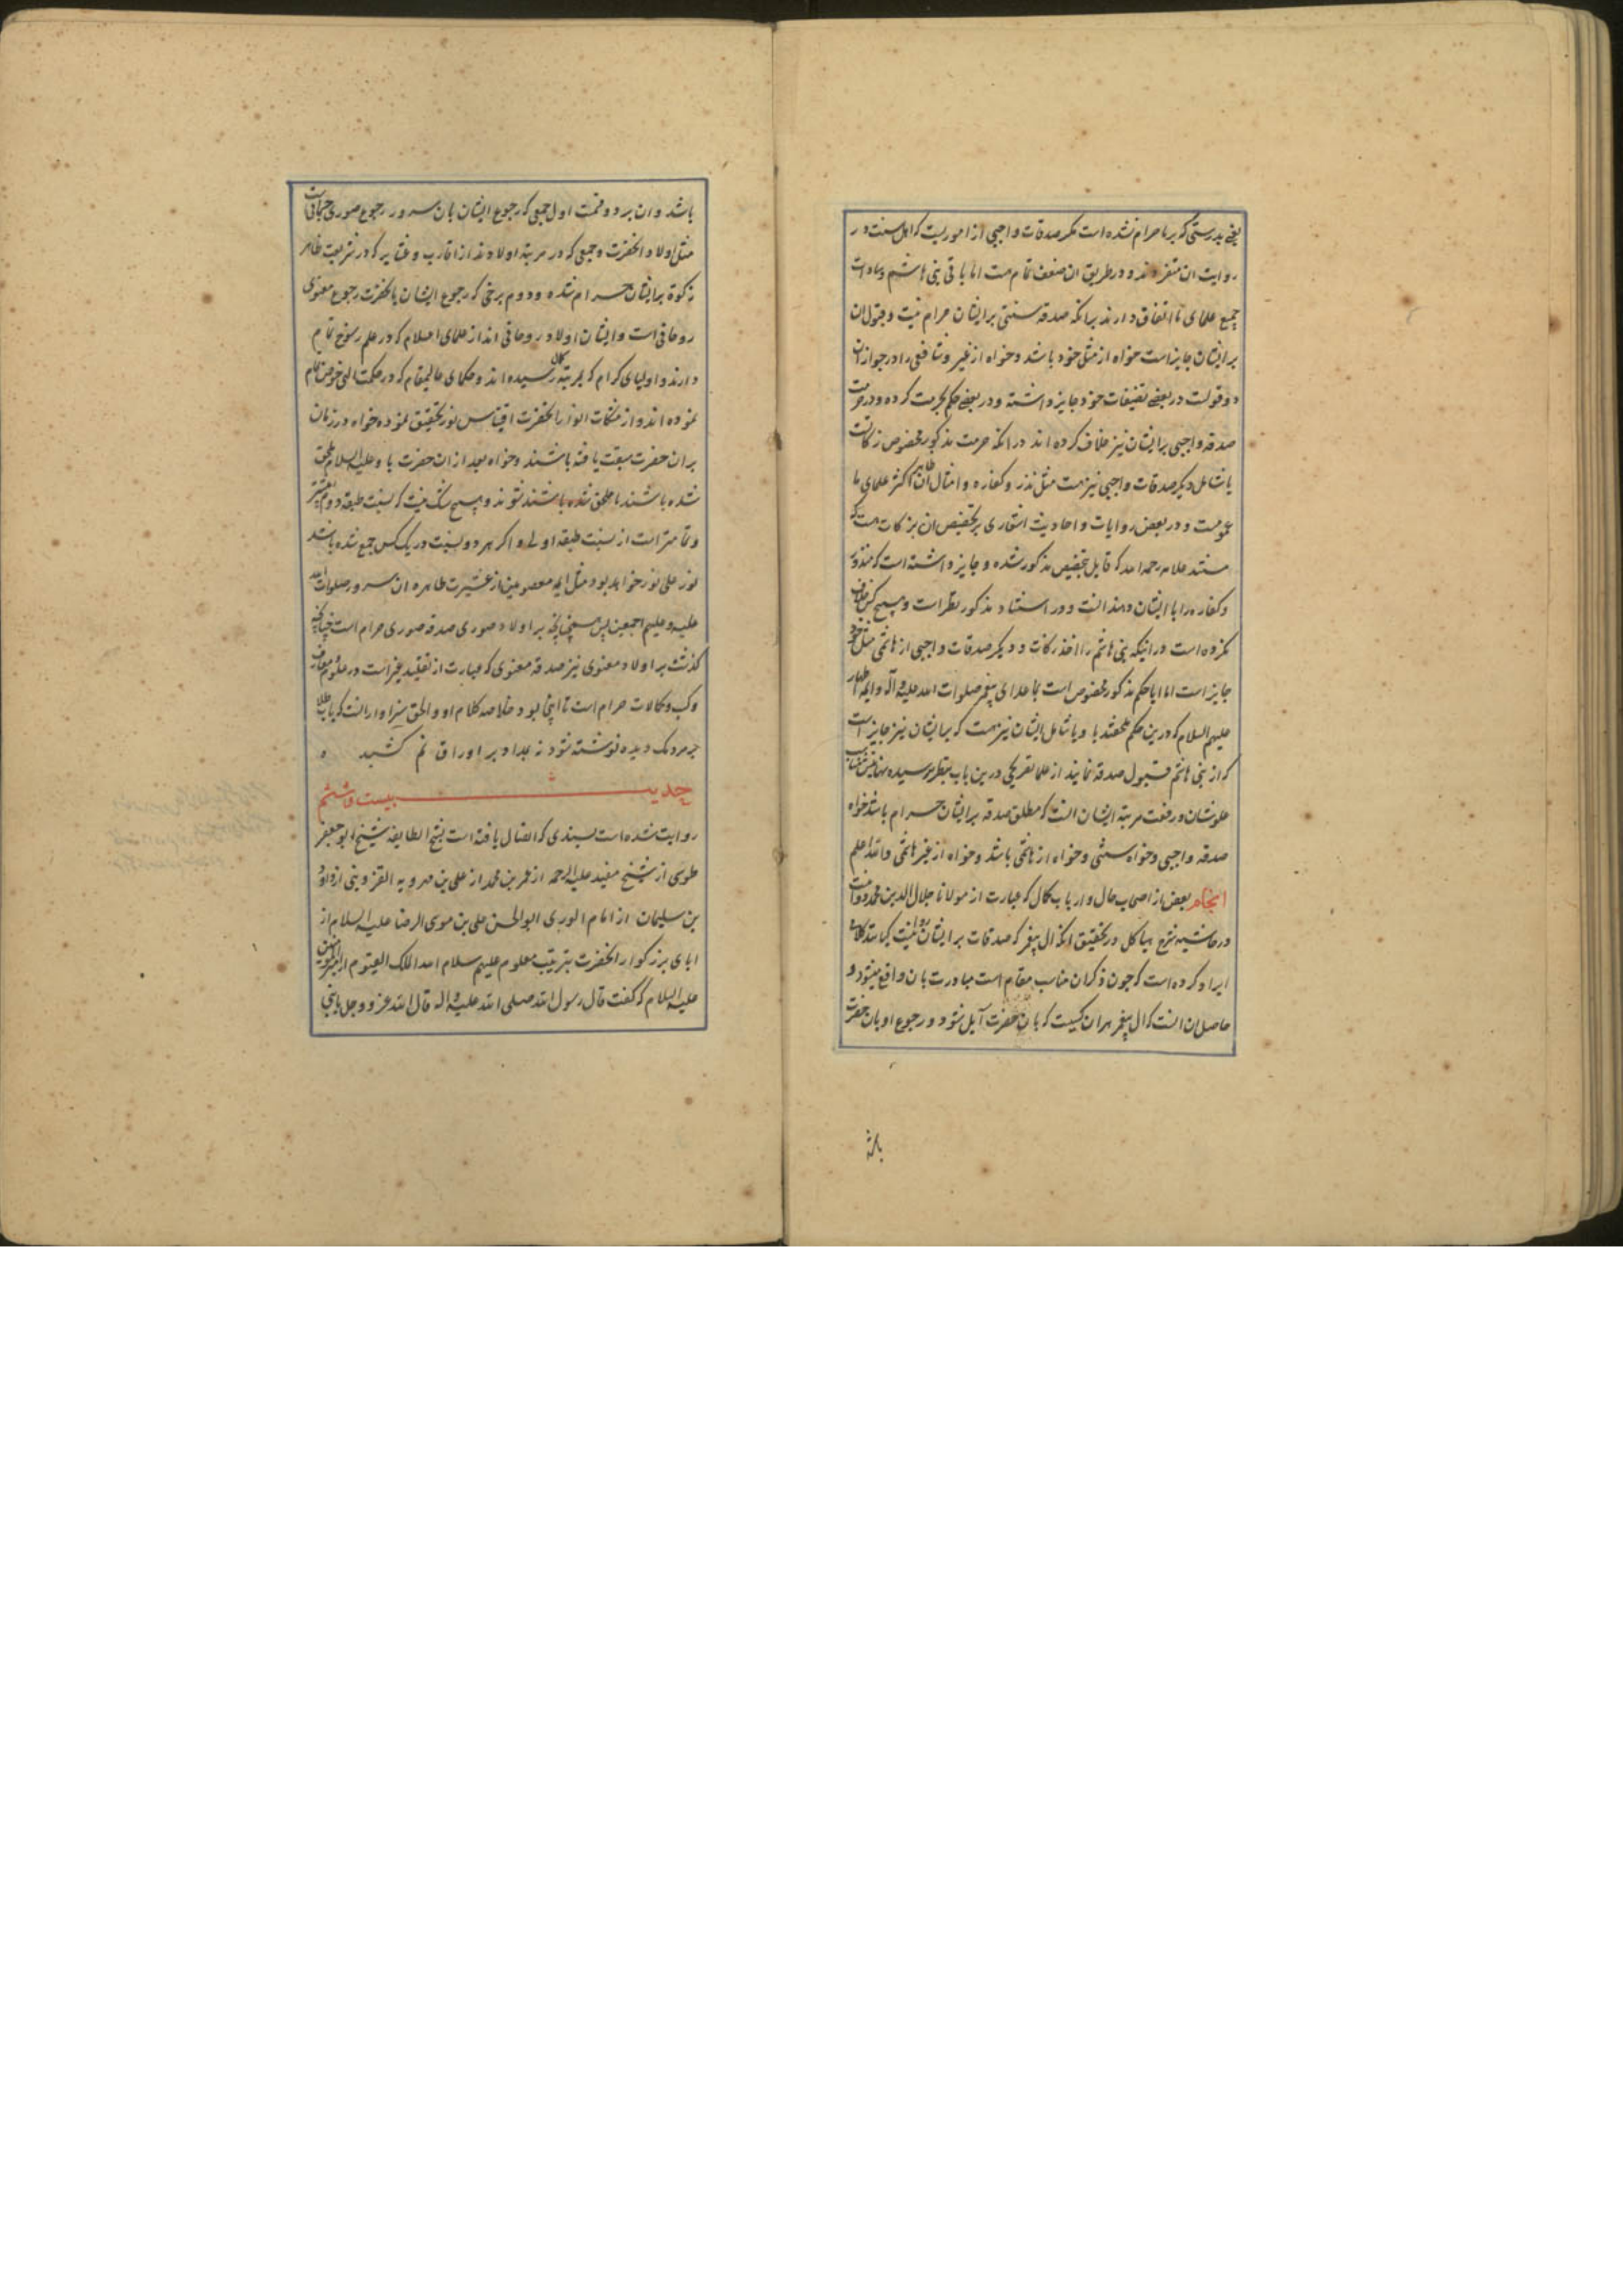 یعنی بدرستی که بر ما حرام نشده است مکر صدقات واجبی از اموریست که اهل سنت در
روایت ان متفرد ند و در طریق ان ضعف تمام هست اما باقی بنی هاشم و سادات
جمیع علمای ما اتفاق دارند برانکه صدقه سنتی بر ایشان حرام نیست و قبول ان
بر ایشان جایز است خواه از مثل خود باشد و خواه از غیر و شافعی را در جواز ان
دو قولست در بعضی تصنیفات خود جایز داشته و در بعضی حکم بحرمت کرده و در حرمت
صدقه واجبی بر ایشان نیز خلاف کرده اند در انکه حرمت مذکور مخصوص زکاتست
یا شامل دیکر صدقات واجبی نیز هست مثل نذر و کفاره و امثال ان ظاهر اکثر علمای ما
عمومست و در بعض روایات و احادیث اشعاری بر تخصیص ان بزکات هست که
مستند علامه رحمه الله که قایل بتخصیص مذکور شده و جایز داشته است که منذور
و کفاره را با ایشان دهند انست و در استناد مذکور نظر است و هیچ کس خلاف
نکرده است در اینکه بنی هاشم را اخذ زکات و دیکر صدقات واجبی از هاشمی مثل خود
جایز است اما ایا حکم مذکور مخصوص است بما عدای پیغمبر صلوات الله علیه و آله و ایمه اطهار
علیهم السلام که درین حکم ملحقند با و یا شامل ایشان نیز هست که بر ایشان نیز جایز است
که از بنی هاشم قبول صدقه نمایند از علما تصریحی درین باب بنظر نرسیده نهایتش مناسب
علو شان و رفعت مرتبه ایشان انست که مطلق صدقه بر ایشان حرام باشد خواه
صدقه واجبی و خواه سنتی و خواه از هاشمی باشد و خواه از غیر هاشمی والله اعلم
انجام بعضی از اصحاب حال و ارباب کمال که عبارت از مولانا جلال الدین محمد دوانیست
در حاشیه شرح هیاکل در تحقیق انکه ال پیغمبر که صدقات بر ایشان روا نیست کیانند کلامی
ایراد کرده است که چون ذکر ان مناسب مقام است مبادرت بان واقع میشود و
حاصل ان انست که ال پیغمبر هر ان کسیست که بان حضرت آیل شود و رجوع او بان حضرت
باشد
باشد و ان بر دو قسمت اول جمعی که رجوع ایشان بان سرور رجوع صوری جسمانیست
مثل اولاد انحضرت و جمعی که در مرتبه اولادند از اقارب و عشایر که در شریعت ظاهر
زکوة بر ایشان حرام شده و دوم برخی که رجوع ایشان بانحضرت رجوع معنوی
روحانی است و ایشان اولاد روحانی اند از علمای اسلام که در علم رسوخ تمام
دارند و اولیای کرام که بمرتبه کمال رسیده اند و حکمای عالیمقام که در حکمت الهی خوض تمام
نموده اند و از مشکات انوار انحضرت اقتباس نور تحقیق نموده خواه در زمان
بر ان حضرت سبقت یافته باشند و خواه بعد از ان حضرت با و علیه السلام ملحق
شده باشند یا ملحق شده باشند شوند و هیچ شک نیست که نسبت طبقه دوم بیشتر
و تمامتر است از نسبت طبقه اولی و اکر هر دو نسبت در یک کس جمع شده باشد
نور علی نور خواهد بود مثل ایمه معصومین از عشیرت طاهره ان سرور صلوات الله
علیه و علیهم اجمعین پس همچنانچه بر اولاد صوری صدقه صوری حرام است چنانکه
کذشت بر اولاد معنوی نیز صدقه معنوی که عبارت از تقلید غیر است در علوم و معارف
و کسب و کمالات حرام است تا اینجا بود خلاصه کلام او و الحق سزاوار انست که
بر مردمک دیده نوشته شود نه بمداد بر اوراق رقم کشید
حدیث بیست و ششم
روایت شده است بسندی که اتصال یافته است بشیخ الطایفه شیخ ابو جعفر
طوسی از شیخ مفید علیه الرحمه از عمر بن محمد از علی بن مهرویه القزوینی از داود
بن سلیمان از امام الوری ابو الحسن علی بن موسی الرضا علیه السلام از
ابای بزرکوار انحضرت بترتیب معلوم علیهم سلام الله الملک القیوم از امیرالمومنین
علیه السلام که کفت قال رسول الله صلی الله علیه و اله قال الله عز و جل یا بنی